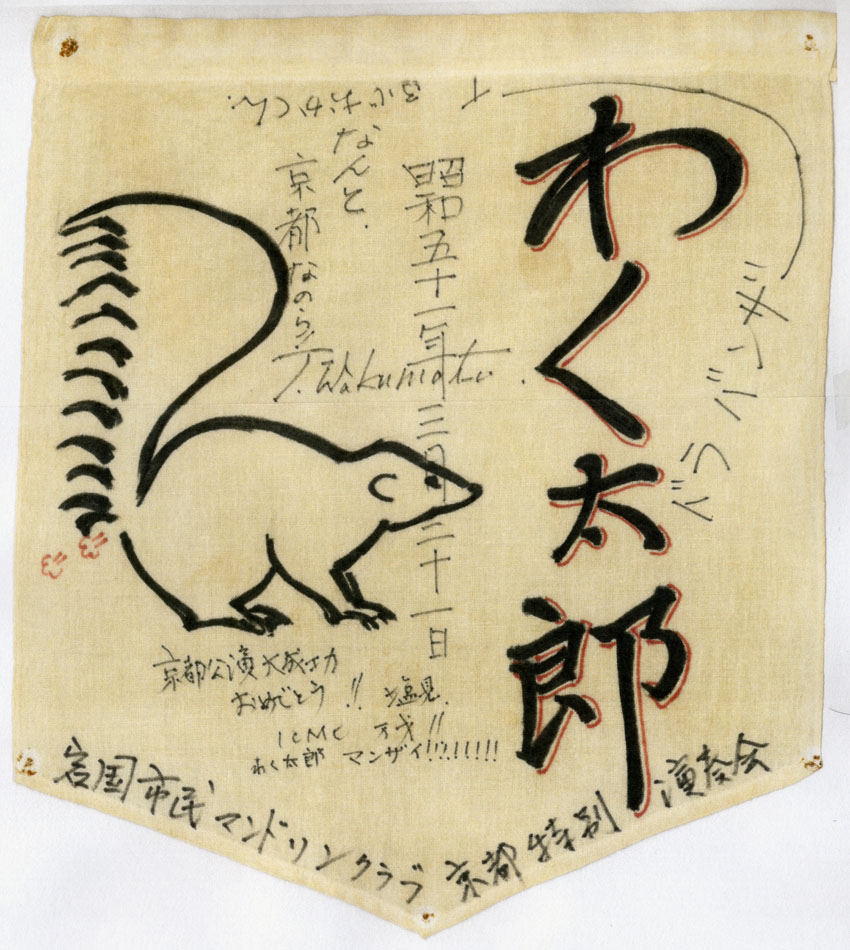 わく太郎
バラバンザイ
昭和五十一年三月二十一日
ふじおかくん
なんと、
京都なのら!
T. Wakumatu.
京都公演大成功
おめでとう!! 塩見.
ICMC 万才!!
わく太郎 マンザイ!!!!!!!!
岩国市民マンドリンクラブ 京都特別演奏会